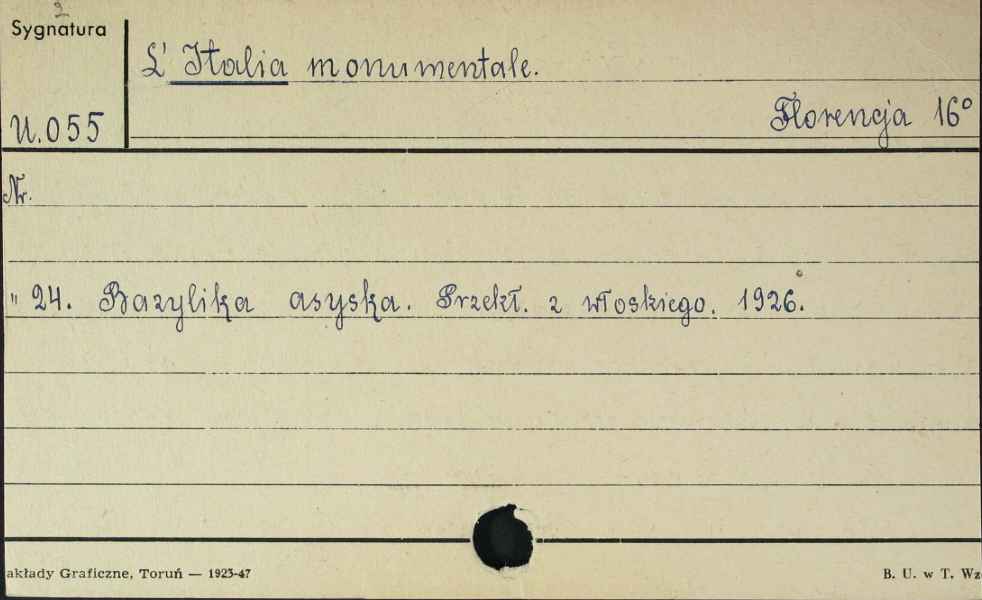 2
Sygnatura
L' Italia monumentale.
Florencja 16°
U.055
Nr.
" 24. Bazylika asyska. Przekł. z włoskiego. 1926.
akłady Graficzne, Toruń — 1923-47
B. U. w T. Wz